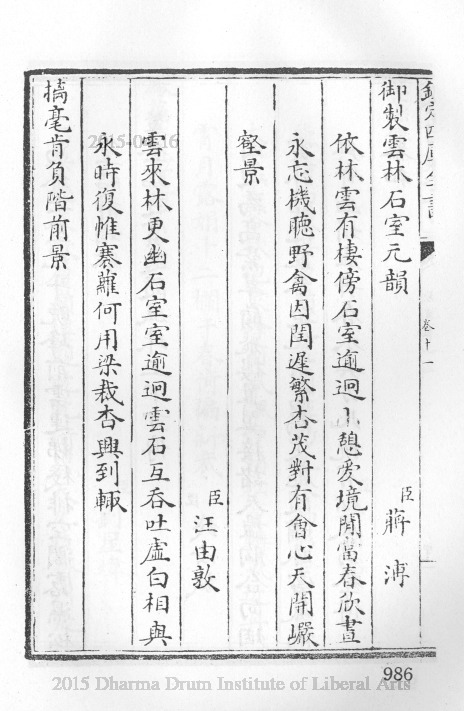 欽定四庫全書
卷十一
御製雲林石室元韻
臣蔣溥
依林雲有棲傍石室逾迥小憩爰境閒當春欣晝
永忘機聽野禽因閏遲繁杏茂對有會心天開巖
壑景
臣汪由敦
雲來林更幽石室室逾迥雲石互吞吐虛白相與
永時復帷蘿何用梁裁杏興到輒
摛毫肯負階前景
2015-04-16
986
2015 Dharma Drum Institute of Liberal Arts